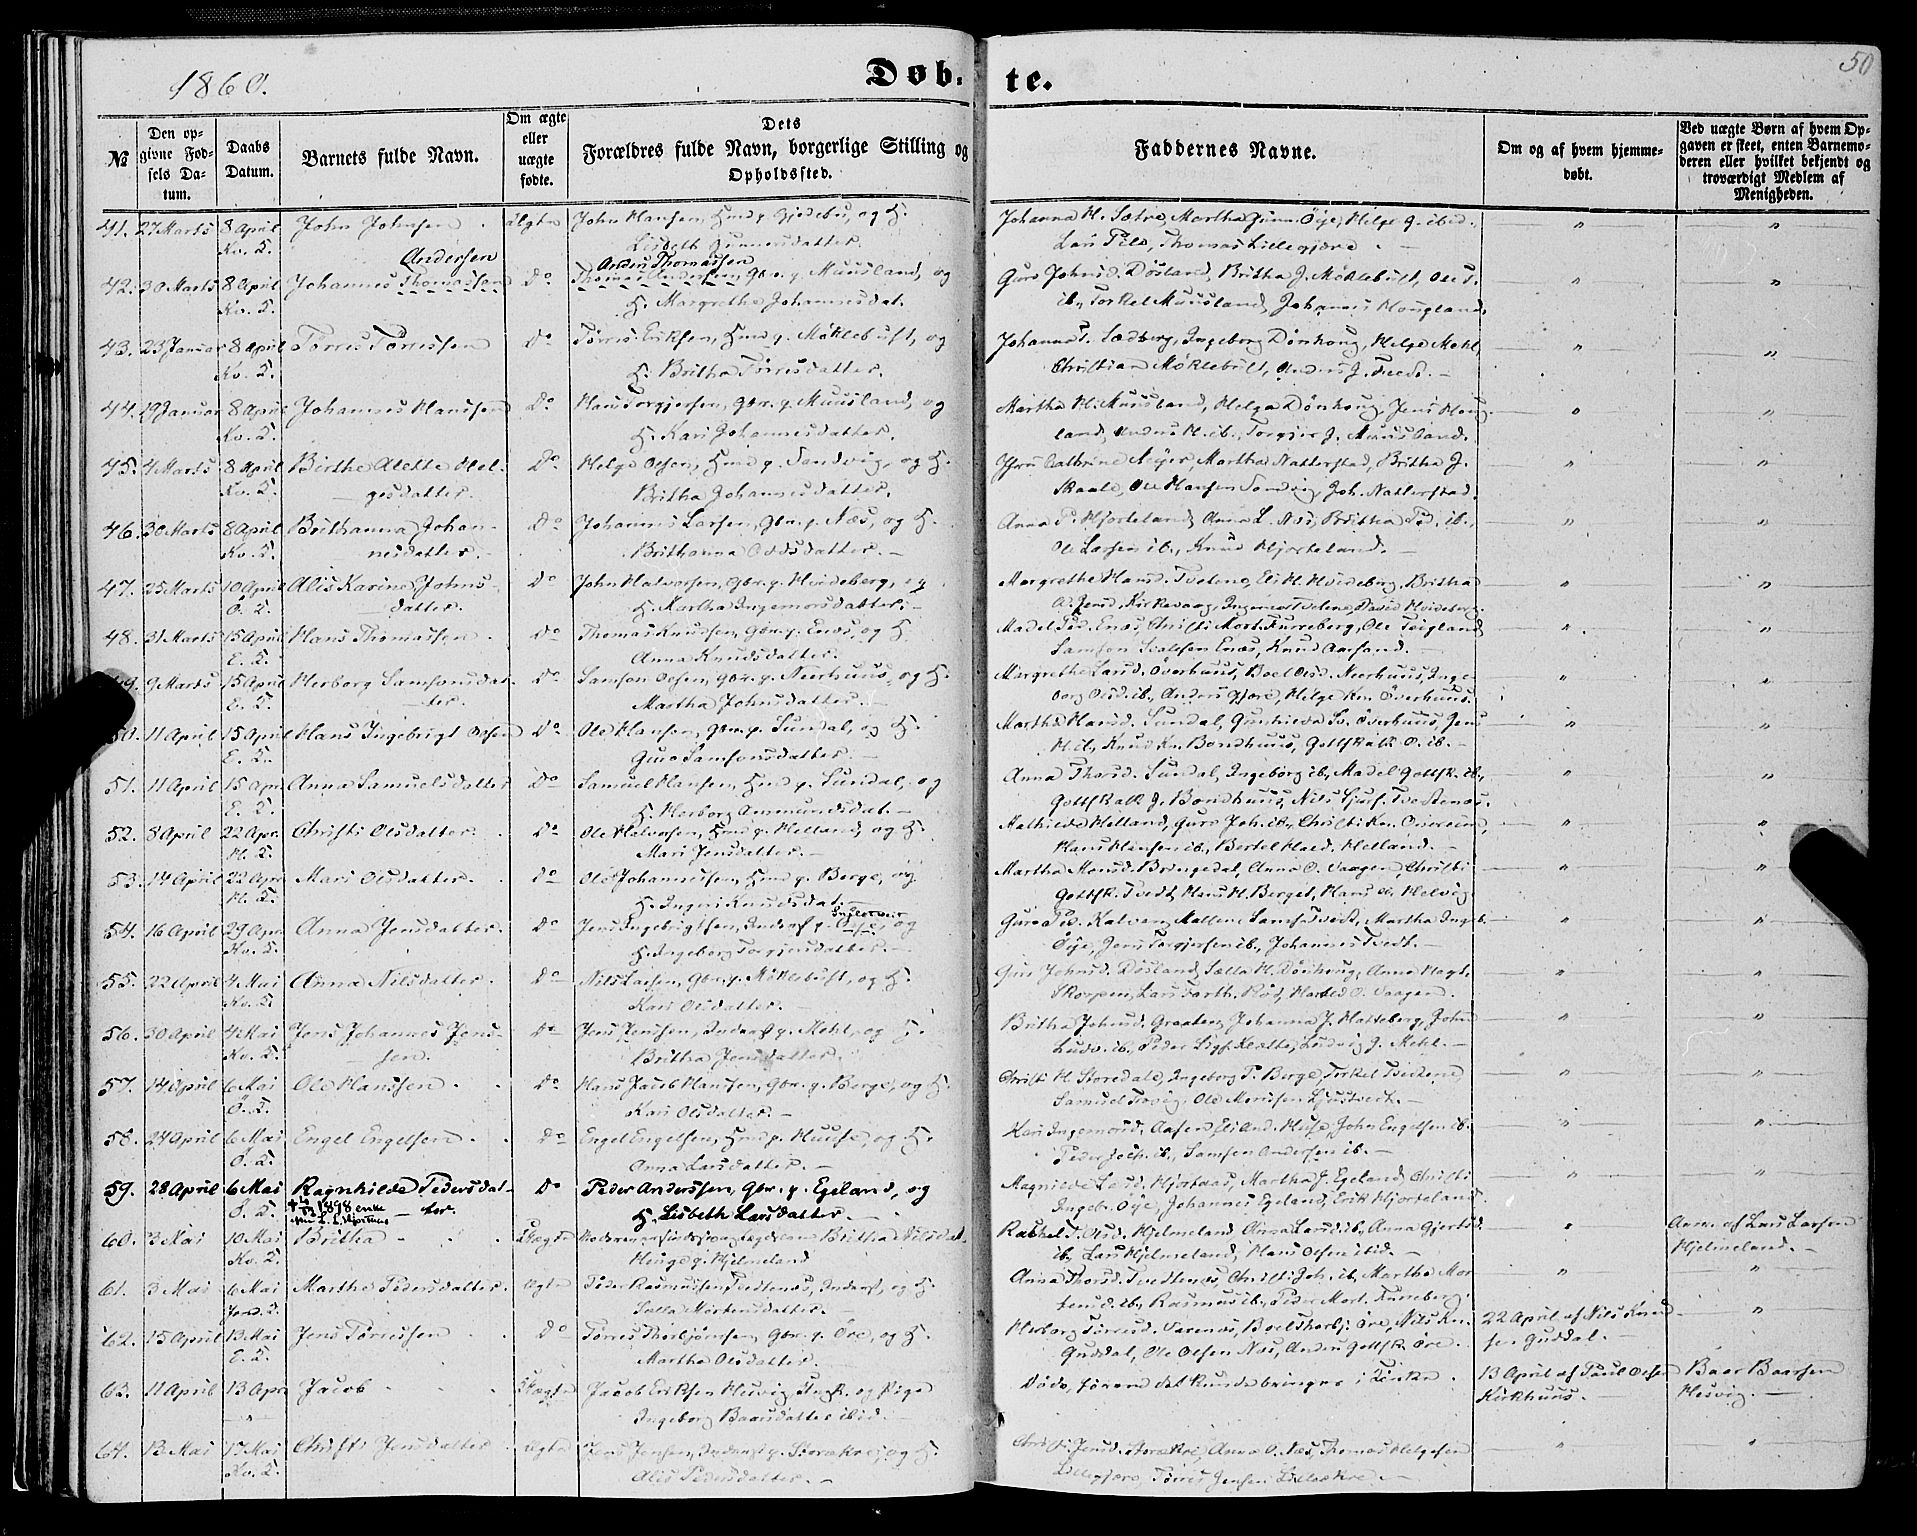 1860.
Døb-
te.
50
№
Den opgivne Fødsels Datum.
Daabs Datum.
Barnets fulde Navn.
Om ægte eller uægte fødte.
Dets Forældres fulde Navn, borgerlige Stilling og Opholdssted.
Faddernes Navne.
Om og af hvem hjemmedøbt.
Ved uægte Børn af hvem Opgaven er skeet, enten Barnemoderen eller hvilket bekjendt og troværdigt Medlem af Menigheden.
41. 27 Marts 8 April John Johnsen Ægte John Hansen, Hmd p. Gjedebu, og H.
Kv. K. Lisbeth Gunnersdatter.
Johanna H. Sætre, Martha Gunn. Øye, Helge G. ibid.
Lars Tele, Thomas Lillegjære
Andersen Anders Thomassen
42. 30 Marts 8 April Johannes Thomassen Do Thomas Andersen, Gbr. p. Muusland, og
Kv. K. H. Margrethe Johannesdat.
Guro Johnsd. Døsland, Britha J. Møklebust, Ole T.
ib., Torkel Muusland, Johannes Hougland.
43. 23 Januar 8 April Tørres Tørressen Do Tørres Eriksen, Hmd p. Møklebust, og
Kv. K. H. Britha Tørresdatter.
Johanna T. Sædberg, Ingeborg Dønhoug, Helge Mehl,
Christian Møklebust, Anders J. Tvedt.
44. 19 Januar 8 April Johannes Hanssen Do Hans Torgjersen, Gbr. p. Muusland, og
Kv. K. H. Kari Johannesdatter.
Martha H. Muusland, Helga Dønhoug, Jens Houg-
land, Anders H. ib., Torgjer J. Muusland.
45. 4 Marts 8 April Birthe Alette Hel- Do Helge Olsen, Hmd p. Sandvig, og H.
Kv. K. gesdatter. Britha Johannesdatter.
Jfru Cathrine Meyer, Martha Natterstad, Britha J.
Skaale, Ole Hansen Sandvig, Joh. Natterstad.
46. 30 Marts 8 April Brithanna Johan- Do Johannes Larsen, Gbr. p. Næs, og H.
Kv. K. nesdatter. Brithanna Oddsdatter.
Anna P. Hjorteland, Anna L. Næs, Britha Ped. ib.,
Ole Larsen ib., Knud Hjorteland.
47. 25 Marts 10 April Alis Karine Johns- Do John Halvorsen, Gbr. p. Hvideberg, og
Ø. K. datter. H. Martha Ingemorsdatter.
Margrethe Hansd. Tvetene, Eli H. Hvideberg, Britha
A. Jensd. Kirkevaag, Ingemor Tvetene, David Hvideberg.
48. 31 Marts 15 April Hans Thomassen Do Thomas Knudsen, Gbr. p. Enæs, og H.
E. K. Anna Knudsdatter.
Madel Ped. Enæs, Christi Mort. Furreberg, Ole Teigland,
Samson Enæs, Knud Aarsand.
49. 9 Marts 15 April Herborg Samsonsdat- Do Samson Olsen, Gbr. p. Neerhuus, og H.
E. K. ter. Martha Johnsdatter.
Margrethe Larsd. Overhuus, Boel Olsd. Neerhuus, Inge-
borg Olsd. ib., Anders Gjære, Helge Kn. Overhuus.
50. 11 April 15 April Hans Ingebrigt Olsen Do Ole Hansen, Gbr. p. Sundal, og H.
E. K. Guro Samsonsdatter.
Martha Hansd. Sundal, Gunhilda Sv. Overhuus, Jens
H. ib., Knud Kn. Bondhuus, Gottskalk O. ib.
51. 11 April 15 Apr. Anna Samuelsdatter Do Samuel Hansen, Hmd p. Sundal, og
E. K. H. Herborg Ammundsdat.
Anna Thorsd. Sundal, Ingeborg ib., Madel Gottsk. ib.,
Gottskalk J. Bondhuus, Nils Tvedtenæs.
52. 8 April 22 Apr. Christi Olsdatter. Do Ole Halvorsen, Hmd p. Helland, og H.
H. K. Mari Jensdatter.
Mathilda Helland, Guro Joh. ib., Christi Kn.
Hans Hansen ib., Bertel Helland.
53. 14 April 22 Apr Mari Olsdatter. Do Ole Johannessen, Hmd p. Berge, og
H. K. H. Ingeri Knudsdat.
Martha Monsd. Bringedal, Anna O. Vaagen, Christi
Gottsk. Tvedt, Hans H. Berget, Hans Helvig
54. 16 April 29 Apr Anna Jensdatter. Do Jens Ingebrigtsen, Inderst p. Øye, og
Kv. K. H. Ingeborg Torgjersdatter.
Guro Pd. Kalven, Malene Sams. Tvedt, Martha Ingeb.
Øye, Jens Torgjersen ib., Johannes Tvedt.
55. 22 April 4 Mai Anna Nilsdatter. Do Nils Larsen, Gbr. p. Møklebust, og H.
Kv. K. Kari Olsdatter.
Guro Johnsd. Døsland, Sella H. Dønhoug, Anna Magt.
Skorpen, Lars Røt, O. Vaagen.
56. 30 April 4 Mai Jens Johannes Jens- Do Jens Jensen, Inderst p. Mehl, og H.
Kv. K. sen. Britha Jensdatter.
Britha Johnsd. Johanna J. Hatteberg, John
Ludv. ib., Peder Ludvig J. Mehl.
57. 14 April 6 Mai Ole Hanssen Do Hans Jacob Hansen, Gbr. p. Berge, og H.
Ø. K. Kari Olsdatter.
Christi H. Storedale, Ingeborg T. Berge, Torkel Tvedtene,
Samuel Trovig, Ole Monssen Ljustvedt.
58. 24 April 6 Mai Engel Engelsen. Do Engel Engelsen, Hmd p. Huuse, og H.
Ø. K. Anna Larsdatter.
Kari Ingemorsd. Aasen, Eli And. Huse, John Engelsen ib.
Peder Joch. ib., Samson Andersen ib.
59. 28 April 6 Mai Ragnhilde Pedersdat- Do Peder Anderssen, Gbr. p. Egeland, og
Ø. K. ter. H. Lisbeth Larsdatter.
1898 enke
L. L. Hjortnæs
Magnilda Larsd. Hjortnæs, Martha J. Egeland, Christi
Ingeb. Øye, Johannes Egeland, Erik Hjorteland.
60. 2 Mai 10 Mai Britha Uægte Britha Nilsdat.
Kv. K. Hjelmeland
Rachel T. Olsd. Hjelmeland, Anna Larsd. ib., Anna Gjertsd.
ib., Lars Hjelmeland, Hans Olsen ibid.
Anm. af Lars Larsen
Hjelmeland.
61. 3 Mai 6 Mai Martha Pedersdatter. Ægte Peder Rasmussen Tvedtenæs, Inderst, og H.
Sella Mortensdatter.
Anna Thorsd. Tvedtenæs, Christi Joh. ib., Martha Mor-
tensd. ib., Rasmus ib., Peder Mort. Furreberg.
62. 15 April 13 Mai Jens Tørressen Do Tørres Thorbjørnsen, Gbr. p. Øre, og H.
E. K. Martha Olsdatter.
Herborg Tørresd. Varenæs, Boel Thorbj. Øre, Nils Kn.
Guddal, Ole Olsen Næs, Anders Gottsk. Øre.
22 April af Nils Knud-
sen Guddal.
63. 11 April 13 Apr Jacob Uægte Jacob Eriksen Hesvig, Ungk. og Pige
Ingeborg Baarsdatter ibid.
Døde, førend det kunde bringes i Kirke.
13 April af Paul Olsen
Kirkhuus.
Baar Baarsen
Hesvig.
64. 12 Mai 17 Mai Christi Jensdatter Ægte Jens Jensen, Inderst p. Storækre, og H.
Kv. K. Alis Pedersdatter.
Christi Jensd. Storækre, Anna O. Næs, Thomas Helgesen
Lillegjære, Tørres Jensen Lilleækre.